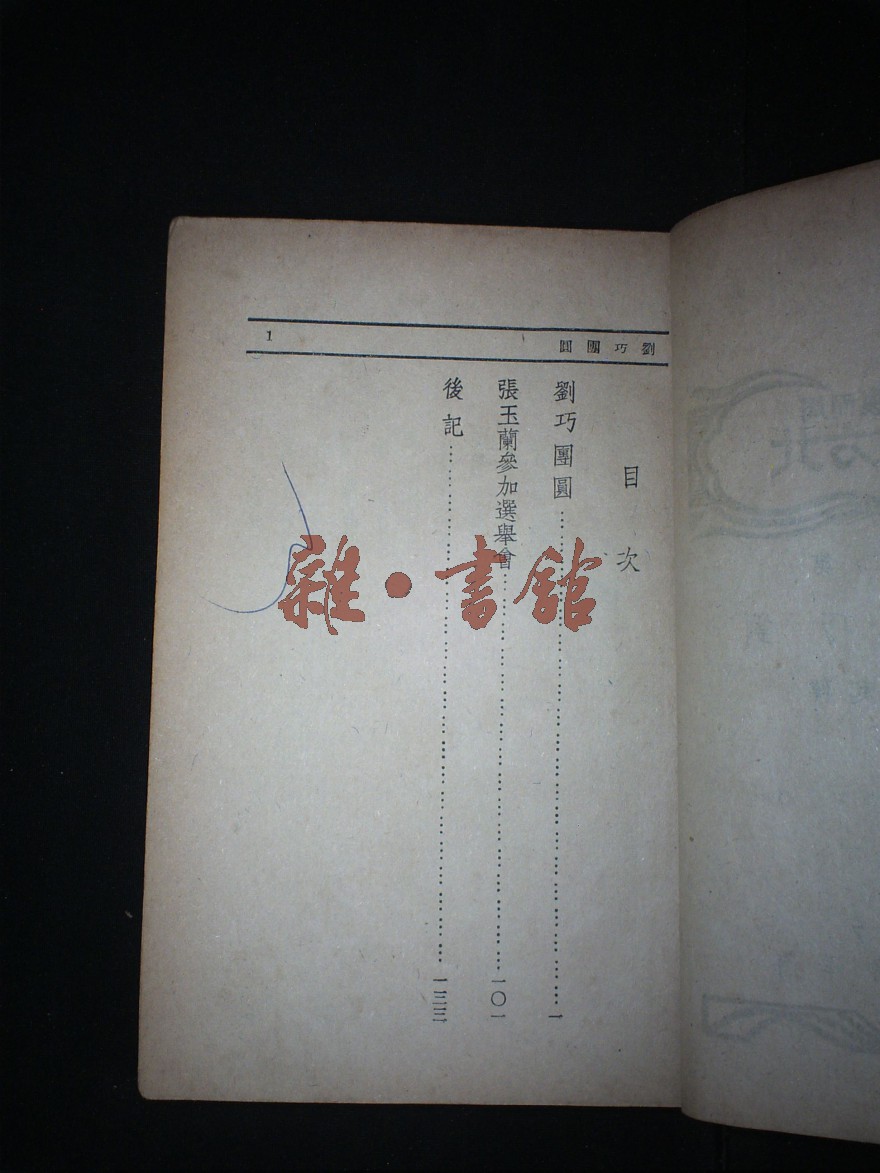 劉巧團圓
1
目次
劉巧團圓……………………一
張玉蘭參加選舉會……………………一〇一
後記……………………一三三
雜·書館